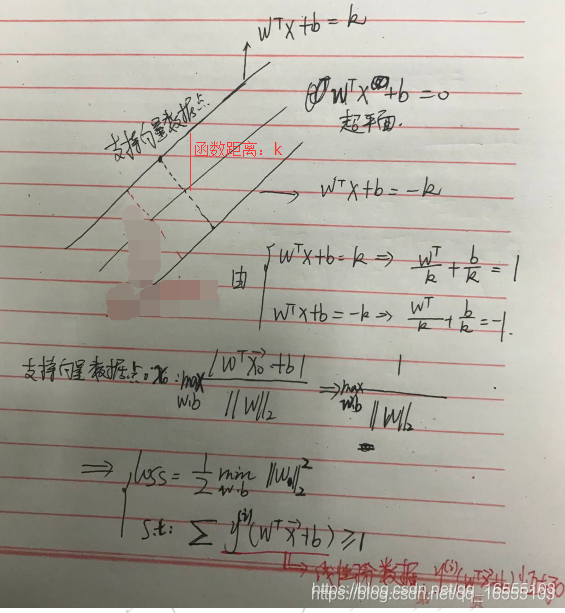 WᵀX+b=k
WᵀX+b=0
超平面.
支持向量数据点
函数距离：k
WᵀX+b=-k
由 { WᵀX+b=k ⇒ Wᵀ/k + b/k = 1
WᵀX+b=-k ⇒ Wᵀ/k + b/k = -1.
支持向量数据点: x₀: max w.b |Wᵀx₀+b| / ||W||₂ ⇒ max w.b 1 / ||W||₂
⇒ { loss = 1/2 min w.b ||W||₂²
s.t: ∑ y⁽ⁱ⁾(Wᵀx+b) ≥ 1
数据
https://blog.csdn.net/qq_16555103